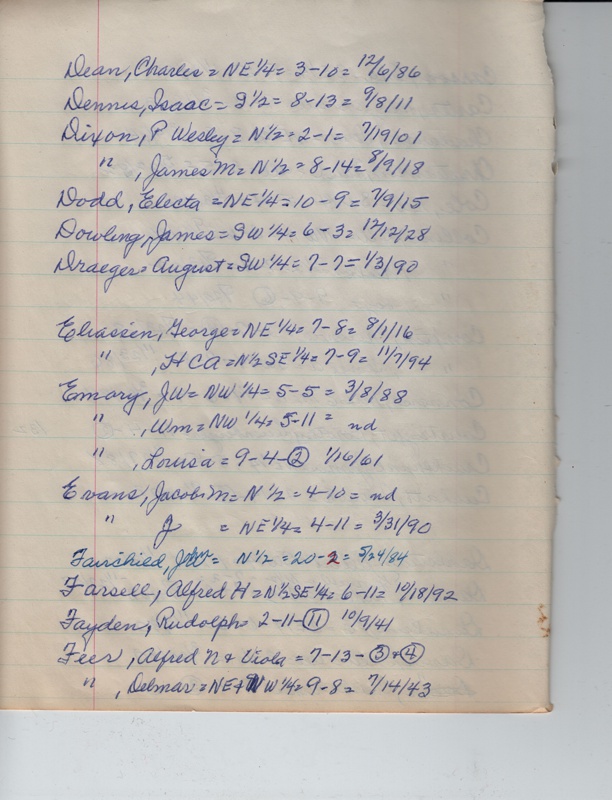 Dean, Charles = NE 1/4 = 3-10 = 12/6/86
Dennis, Isaac = S 1/2 = 8-13 = 9/8/11
Dixon, P Wesley = N 1/2 = 2-1 = 7/19/01
" , James M = N 1/2 = 8-14 = 8/9/18
Dodd, Electa = NE 1/4 = 10-9 = 7/9/15
Dowling, James = SW 1/4 = 6-3 = 12/12/28
Draeger = August = SW 1/4 = 7-7 = 1/3/90
Eliassen, George = NE 1/4 = 7-8 = 8/1/16
" , H C A = N 1/2 SE 1/4 = 7-9 = 11/7/94
Emory, JW = NW 1/4 = 5-5 = 3/8/88
" , Wm = NW 1/4 = 5-11 = nd
" , Louisa = 9-4-② 1/16/61
Evans, Jacob M = N 1/2 = 4-10 = nd
" J = NE 1/4 = 4-11 = 3/31/90
Fairchied, JW = N 1/2 = 20-2 = 5/24/84
Farsell, Alfred H = N 1/2 SE 1/4 = 6-11 = 10/18/92
Fayden, Rudolph = 2-11-⑪ 10/9/41
Feer, Alfred N + Viola = 7-13-③+④
" , Delmar = NE + NW 1/4 = 9-8 = 7/14/43